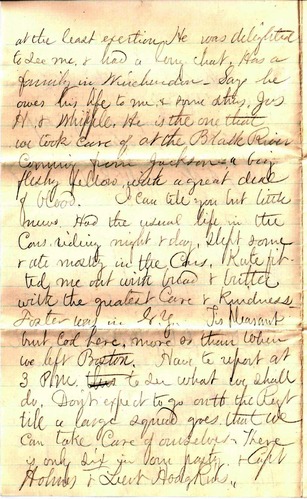 at the least exertion. He was delighted
to see me, & had a long chat. Has a
family in Winchendon – Says he
owes his life to me & some others, Jos
H. & Whipple. He is the one that
we took care of at the Black River
coming from Jackson – a big
fleshy fellow with a great deal
of blood. I can tell you but little
news. Had the usual life in the
Cars. riding night & day, Slept some
& ate mostly in the Cars. Kate fit-
ted me out with bread & butter
with the greatest Care & Kindness
Foster was in N.Y. Tis Pleasant
but Cod here, more so than when
we left Boston. Have to report at
3 P.M. to see what we shall
do. Don't expect to go on to the Regt
till a large squad goes that we
can take Care of ourselves – There
is only six in some party & Capt
Holmes & Lieut Hodgkins.